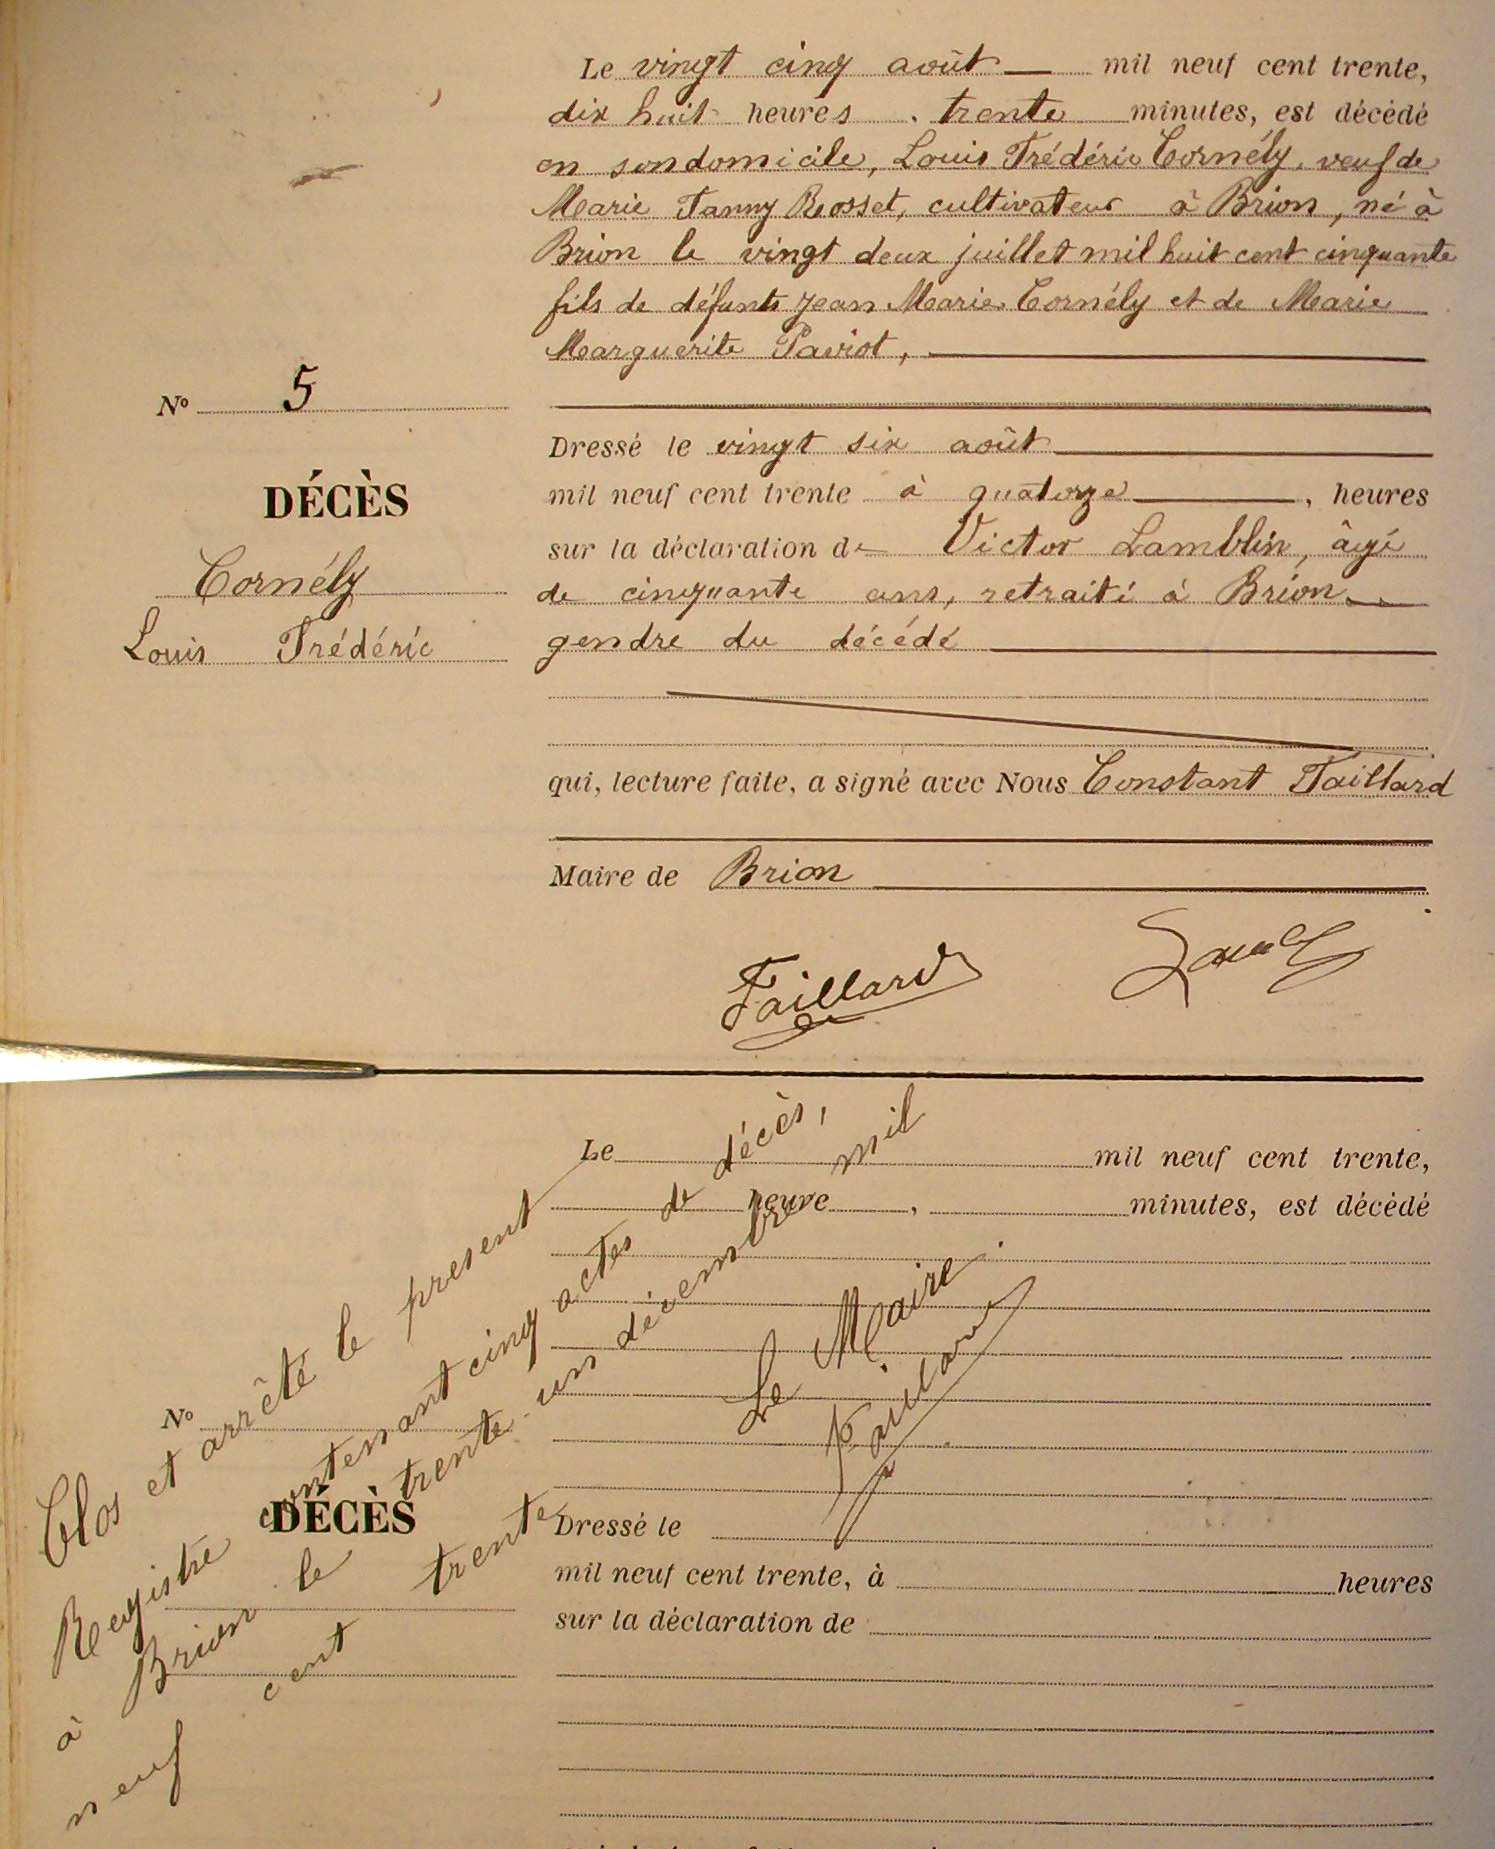 Le vingt cinq août mil neuf cent trente,
dix huit heures . trente minutes, est décédé
en son domicile, Louis Frédéric Cornély, veuf de
Marie Fanny Rosset, cultivateur à Brion, né à
Brion le vingt deux juillet mil huit cent cinquante
fils de défunts Jean Marie Cornély et de Marie
Marguerite Paviot,
Nº 5
Dressé le vingt six août
mil neuf cent trente à quatorze, heures
DÉCÈS
sur la déclaration de Victor Lamblin, âgé
Cornély
de cinquante ans, retraité à Brion
Louis Frédéric
gendre du décédé
qui, lecture faite, a signé avec Nous Constant Taillard
Maire de Brion
Taillard
Le mil neuf cent trente,
heure , minutes, est décédé
Nº
DÉCÈS
Dressé le
mil neuf cent trente, à heures
sur la déclaration de
Clos et arrêté le present
Registre contenant cinq actes de décès,
à Brion le trente-un décembre mil
neuf cent trente
Le Maire
Taillard